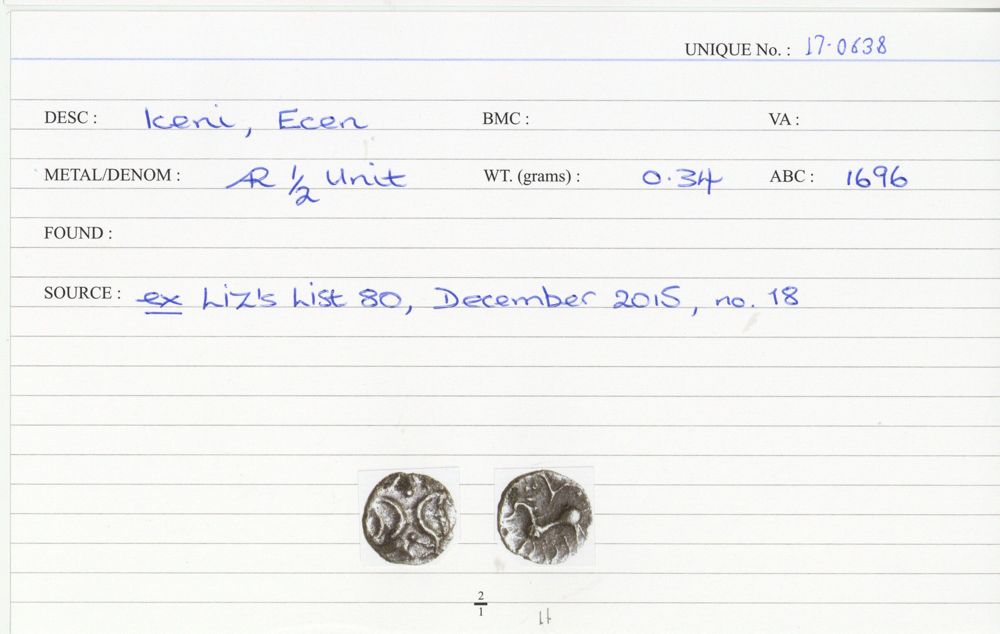 UNIQUE No. : 17-0638
DESC : Iceni, Ecen BMC : VA :
METAL/DENOM : AR 1/2 Unit WT. (grams) : 0.34 ABC : 1696
FOUND :
SOURCE : ex Liz's List 80, December 2015, no. 18
2/1